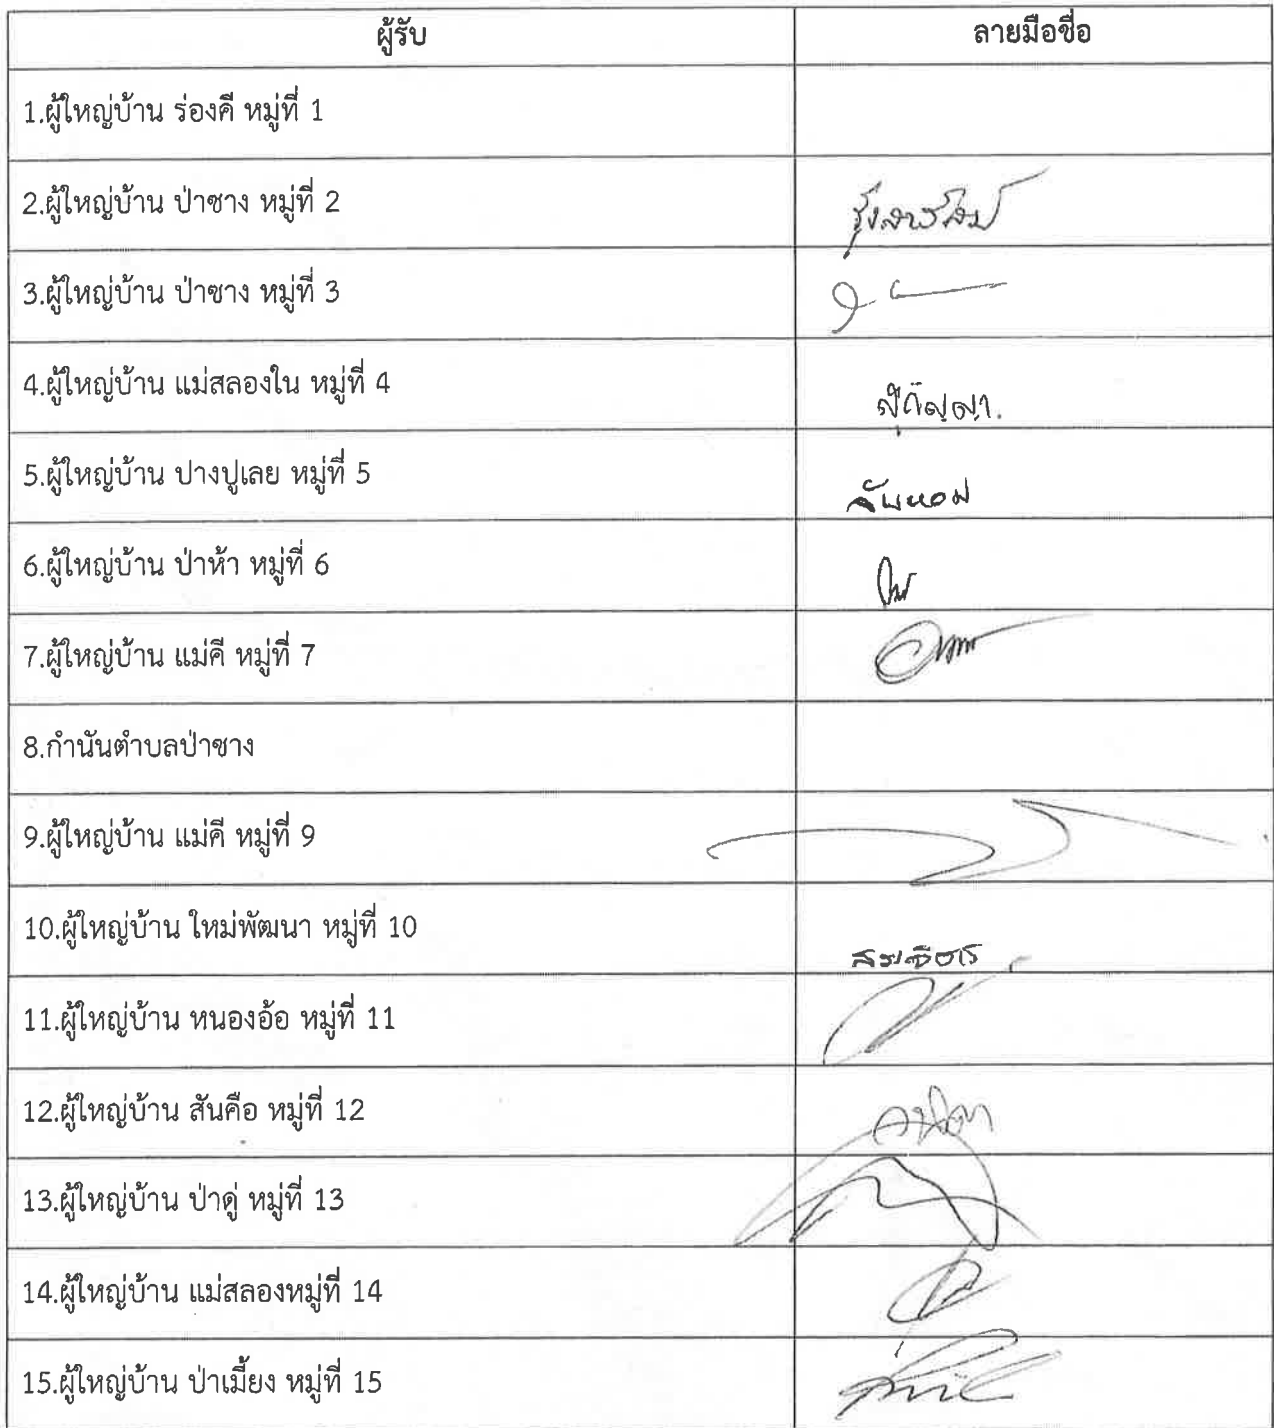 ผู้รับ ลายมือชื่อ
1.ผู้ใหญ่บ้าน ร่องคี หมู่ที่ 1
2.ผู้ใหญ่บ้าน ป่าซาง หมู่ที่ 2
3.ผู้ใหญ่บ้าน ป่าซาง หมู่ที่ 3
4.ผู้ใหญ่บ้าน แม่สลองใน หมู่ที่ 4
สุกัญญา.
5.ผู้ใหญ่บ้าน ปางปูเลย หมู่ที่ 5
จันหอม
6.ผู้ใหญ่บ้าน ป่าห้า หมู่ที่ 6
7.ผู้ใหญ่บ้าน แม่คี หมู่ที่ 7
8.กำนันตำบลป่าซาง
9.ผู้ใหญ่บ้าน แม่คี หมู่ที่ 9
10.ผู้ใหญ่บ้าน ใหม่พัฒนา หมู่ที่ 10
11.ผู้ใหญ่บ้าน หนองอ้อ หมู่ที่ 11
12.ผู้ใหญ่บ้าน สันคือ หมู่ที่ 12
13.ผู้ใหญ่บ้าน ป่าดู่ หมู่ที่ 13
14.ผู้ใหญ่บ้าน แม่สลองหมู่ที่ 14
15.ผู้ใหญ่บ้าน ป่าเมี้ยง หมู่ที่ 15